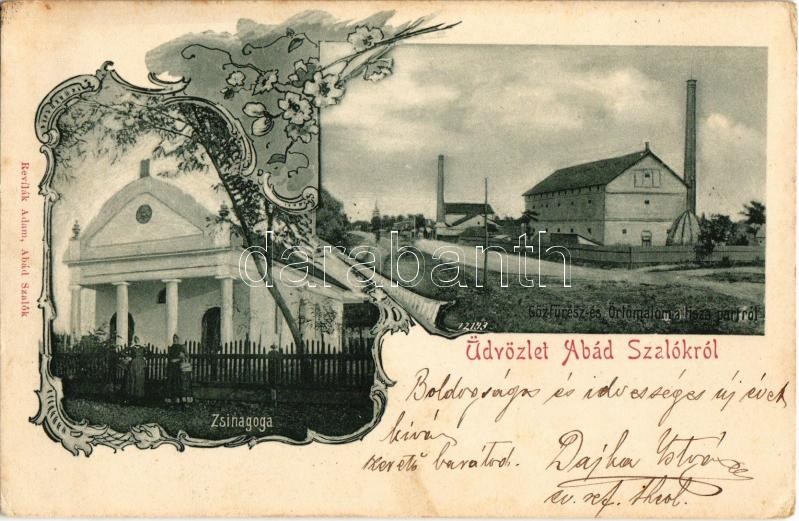 Revilák Adam, Abád Szalók
Zsinagoga
12143
Gőzfürész-és Őrlőmalom a Tisza partról
Üdvözlet Abád Szalókról
darabanth
Boldogságos és idvességes új évet
kíván
szerető barátod. Dajka István
ev. ref. theol.